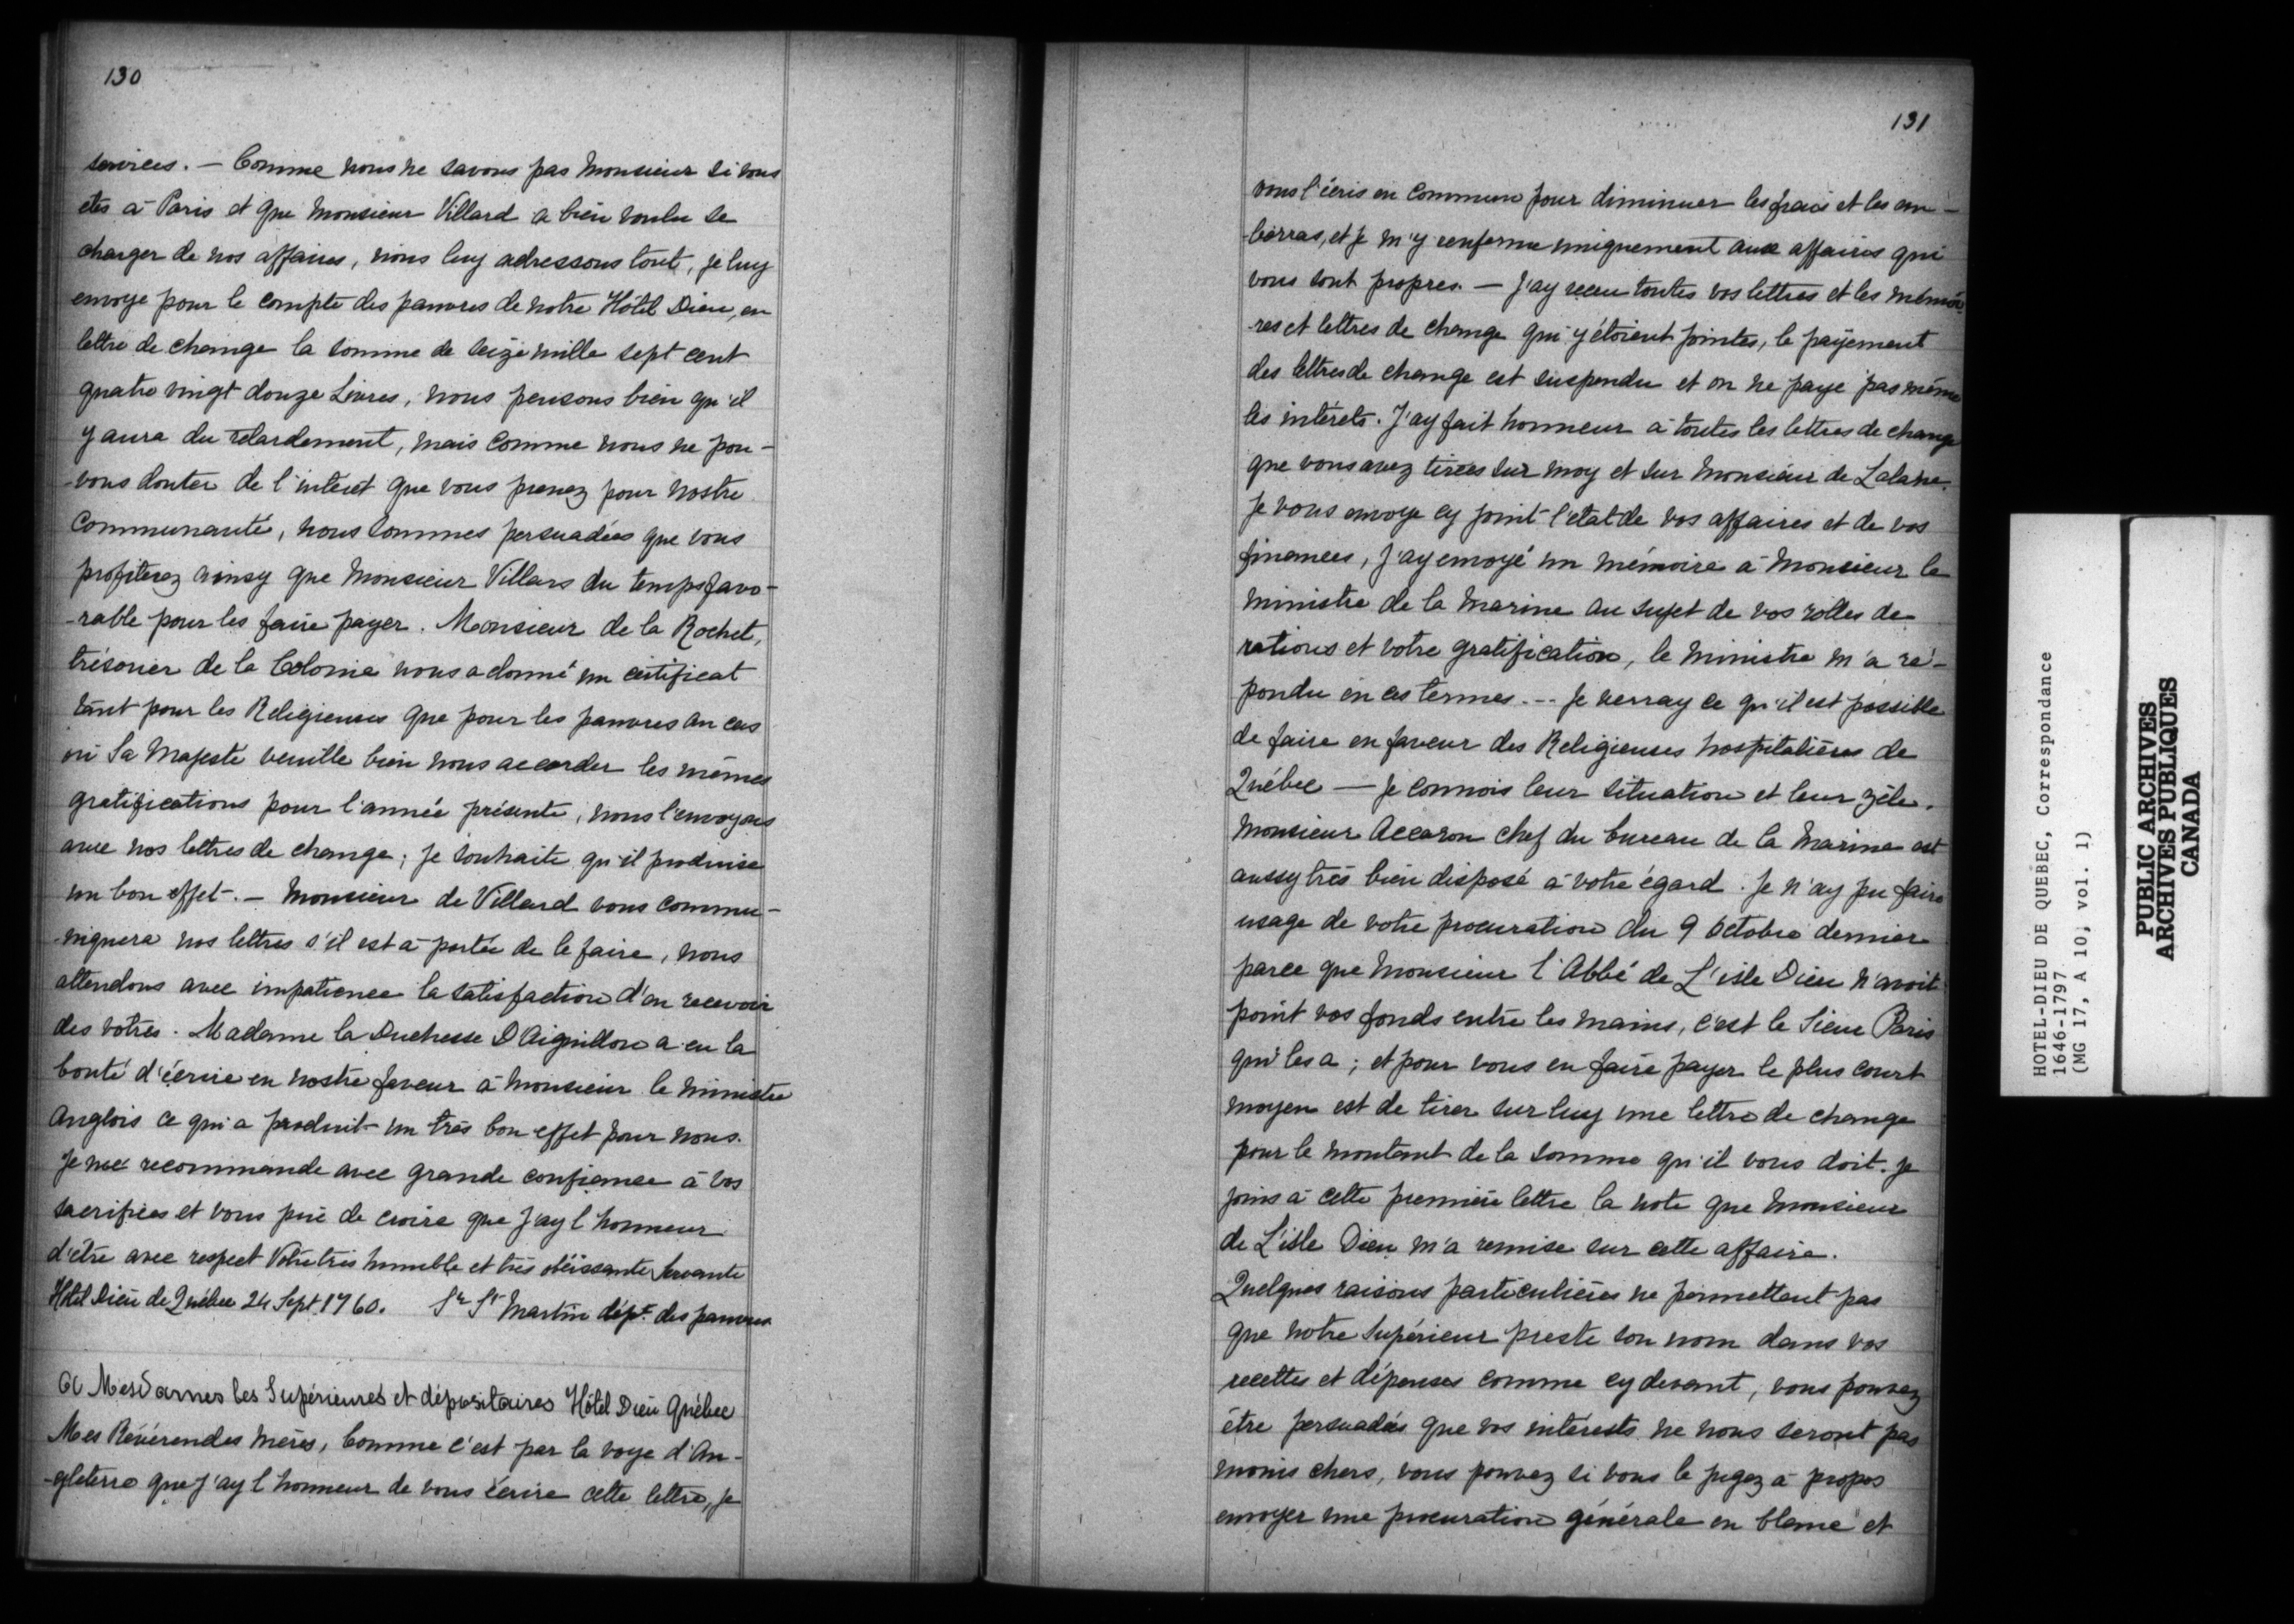 130
services. — Comme nous ne savons pas Monsieur si vous
etes à Paris et que Monsieur Villard a bien voulu se
charger de nos affaires, nous luy adressons tout, je luy
envoye pour le compte des pauvres de notre Hôtel Dieu, en
lettre de change la somme de seize mille sept cent
quatre vingt douze Livres, nous pensons bien qu'il
y aura du retardement, mais comme nous ne pou-
-vons douter de l'interet que vous prenez pour nostre
Communauté, nous sommes persuadées que vous
profiterez ainsy que Monsieur Villars du temps favo-
-rable pour les faire payer. Monsieur de la Rochet,
trésorier de la Colonie nous a donné un certificat
tant pour les Religieuses que pour les pauvres au cas
où Sa Majesté veuille bien nous accorder les mêmes
gratifications pour l'année présente, nous l'envoyons
avec nos lettres de change; je souhaite qu'il produise
un bon effet. — Monsieur de Villard vous commu-
-niquera nos lettres s'il est à portée de le faire, nous
attendons avec impatience la satisfaction d'en recevoir
des votres. Madame la Duchesse D'Aiguillon a eu la
bonté d'écrire en nostre faveur à Monsieur le ministre
Anglois ce qui a produit un très bon effet pour nous.
Je me recommande avec grande confiance à vos
sacrifices et vous prie de croire que j'ay l'honneur
d'être avec respect Votre très humble et très obéissante Servante
Hôtel Dieu de Québec 24 Sept. 1760. Sr St Martin dépt. des pauvres
A Mesdames les Supérieures et dépositaires Hôtel Dieu Québec
Mes Révérendes mères, Comme c'est par la voye d'An-
-gleterre que j'ay l'honneur de vous écrire cette lettre, je
131
vous l'écris en commun pour diminuer les frais et les em-
-barras, et je m'y renferme uniquement aux affaires qui
vous sont propres. — J'ay receu toutes vos lettres et les mémoi
-res et lettres de change qui y étoient jointes, le payement
des lettres de change est suspendu et on ne paye pas même
les intérets. J'ay fait honneur à toutes les lettres de change
que vous avez tirées sur moy et sur Monsieur de Lalane.
Je vous envoye cy joint l'etat de vos affaires et de vos
finances, j'ay envoyé un mémoire à Monsieur le
Ministre de la Marine au sujet de vos rolles de
rations et votre gratification, le Ministre m'a ré-
pondu en ces termes. -- Je verray ce qu'il est possible
de faire en faveur des Religieuses hospitalières de
Québec — Je connois leur situation et leur zèle.
Monsieur Accaron chef du bureau de la Marine est
aussy très bien disposé à votre égard. Je n'ay pu faire
usage de votre procuration du 9 Octobre dernier
parce que Monsieur l'Abbé de L'isle Dieu n'avoit
point vos fonds entre les mains, c'est le Sieur Paris
qui les a; et pour vous en faire payer le plus court
moyen est de tirer sur luy une lettre de change
pour le montant de la somme qu'il vous doit. Je
joins à cette première lettre la note que Monsieur
de L'isle Dieu m'a remise sur cette affaire.
Quelques raisons particulières ne permettent pas
que notre Supérieur preste son nom dans vos
recettes et dépenses comme cy devant, vous pouvez
être persuadées que vos intérests ne nous seront pas
moins chers, vous pouvez si vous le jugez à propos
envoyer une procuration générale en blanc et
HOTEL-DIEU DE QUEBEC, Correspondance
1646-1797
(MG 17, A 10, vol. 1)
PUBLIC ARCHIVES
ARCHIVES PUBLIQUES
CANADA